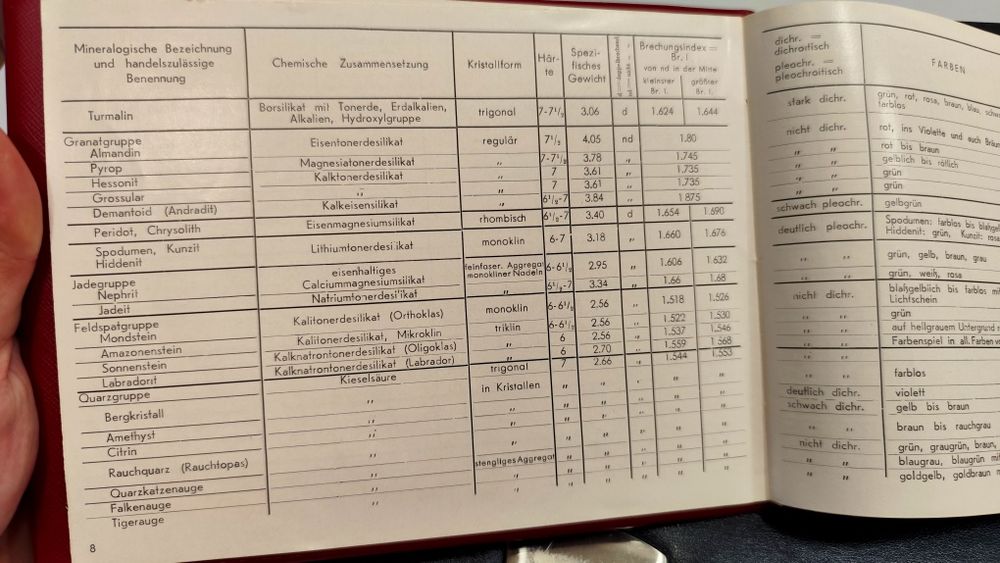 Mineralogische Bezeichnung
und handelszulässige
Benennung
Chemische Zusammensetzung
Kristallform
Här-
te
Spezi-
fisches
Gewicht
Brechungsindex =
Br. I
von nd in der Mitte
kleinster größrer
Br. I. Br. I.
dichr. =
dichroitisch
pleochr. =
pleochroitisch
FARBEN
Turmalin Borsilikat mit Tonerde, Erdalkalien, trigonal 7-7¹/₂ 3.06 d 1.624 1.644 stark dichr. grün, rot, rosa, braun, blau,
Alkalien, Hydroxylgruppe farblos
Granatgruppe
Almandin Eisentonerdesilikat regulär 7¹/₂ 4.05 nd 1.80 nicht dichr. rot, ins Violette und auch
Pyrop Magnesiatonerdesilikat „ 7-7¹/₂ 3.78 „ 1.745 „ „ rot bis braun
Hessonit Kalktonerdesilikat „ 7 3.61 „ 1.735 „ „ gelblich bis rötlich
Grossular „ „ 7 3.61 „ 1.735 „ „ grün
Demantoid (Andradit) Kalkeisensilikat „ 6¹/₂-7 3.84 „ 1.875 „ „ grün
Peridot, Chrysolith Eisenmagnesiumsilikat rhombisch 6¹/₂-7 3.40 d 1.654 1.690 schwach pleochr. gelbgrün
Spodumen, Kunzit Lithiumtonerdesilikat monoklin 6-7 3.18 „ 1.660 1.676 deutlich pleochr. Spodumen: farblos bis
Hiddenit Hiddenit: grün, Kunzit:
Jadegruppe
Nephrit eisenhaltiges feinfaser. Aggregat 6-6¹/₂ 2.95 „ 1.606 1.632 „ „ grün, gelb, braun, grau
Calciummagnesiumsilikat monokliner Nadeln
Jadeit Natriumtonerdesilikat „ 6¹/₂-7 3.34 „ 1.66 1.68 „ „ grün, weiß, rosa
Feldspatgruppe
Mondstein Kalitonerdesilikat (Orthoklas) monoklin 6-6¹/₂ 2.56 „ 1.518 1.526 nicht dichr. blaßgelblich bis farblos
Lichtschein
Amazonenstein Kalitonerdesilikat, Mikroklin triklin 6-6¹/₂ 2.56 „ 1.522 1.530 „ „ grün
Sonnenstein Kalknatrontonerdesilikat (Oligoklas) „ 6 2.56 „ 1.537 1.546 „ „ auf hellgrauem Untergrund
Labradorit Kalknatrontonerdesilikat (Labrador) „ 6 2.70 „ 1.559 1.568 „ „ Farbenspiel in all. Farben
Quarzgruppe Kieselsäure trigonal 7 2.66 „ 1.544 1.553
Bergkristall „ in Kristallen „ „ „ „ „ farblos
Amethyst „ „ „ „ „ deutlich dichr. violett
Citrin „ „ „ „ „ schwach dichr. gelb bis braun
Rauchquarz (Rauchtopas) „ „ „ „ „ „ „ braun bis rauchgrau
Quarzkatzenauge „ stengliges Aggregat „ „ „ nicht dichr. grün, graugrün, braun,
Falkenauge „ „ „ „ „ „ „ blaugrau, blaugrün
Tigerauge „ „ „ „ „ „ „ goldgelb, goldbraun
8